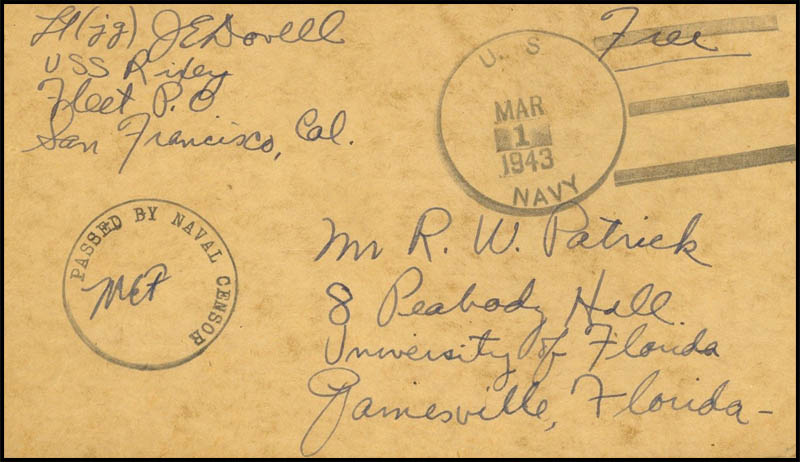 Lt (jg) J E Dovell
USS Rixey
Fleet P. O
San Francisco, Cal.
U. S.
MAR
1
1943
NAVY
Free
PASSED BY NAVAL CENSOR
MEF
Mr R. W. Patrick
8 Peabody Hall
University of Florida
Gainesville, Florida-